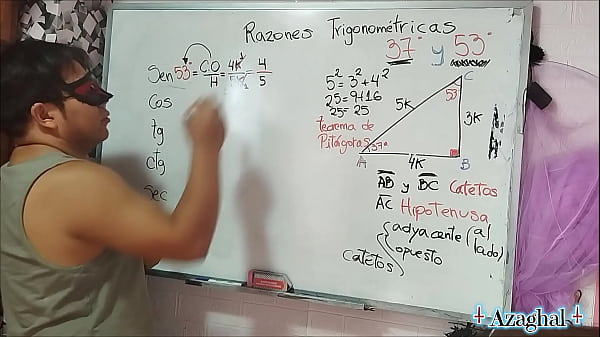 Razones Trigonométricas
37° y 53°
Sen 53° = CO/H = 4K/5K = 4/5
Cos
tg
ctg
Sec
5² = 3² + 4²
25 = 9+16
25 = 25
teorema de
Pitágoras
C
53°
5K
3K
37°
A
4K
B
AB y BC Catetos
AC Hipotenusa
Catetos
adyacente (al lado)
opuesto
Azaghal